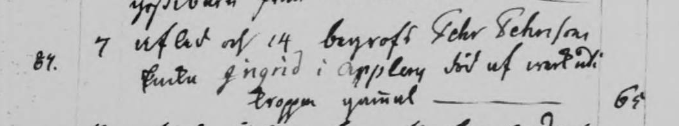 84. 7 afled och 14 begrofs Pehr Pehrsons
Enka Jngrid i Applery död af werk udi
kroppen gamal 65